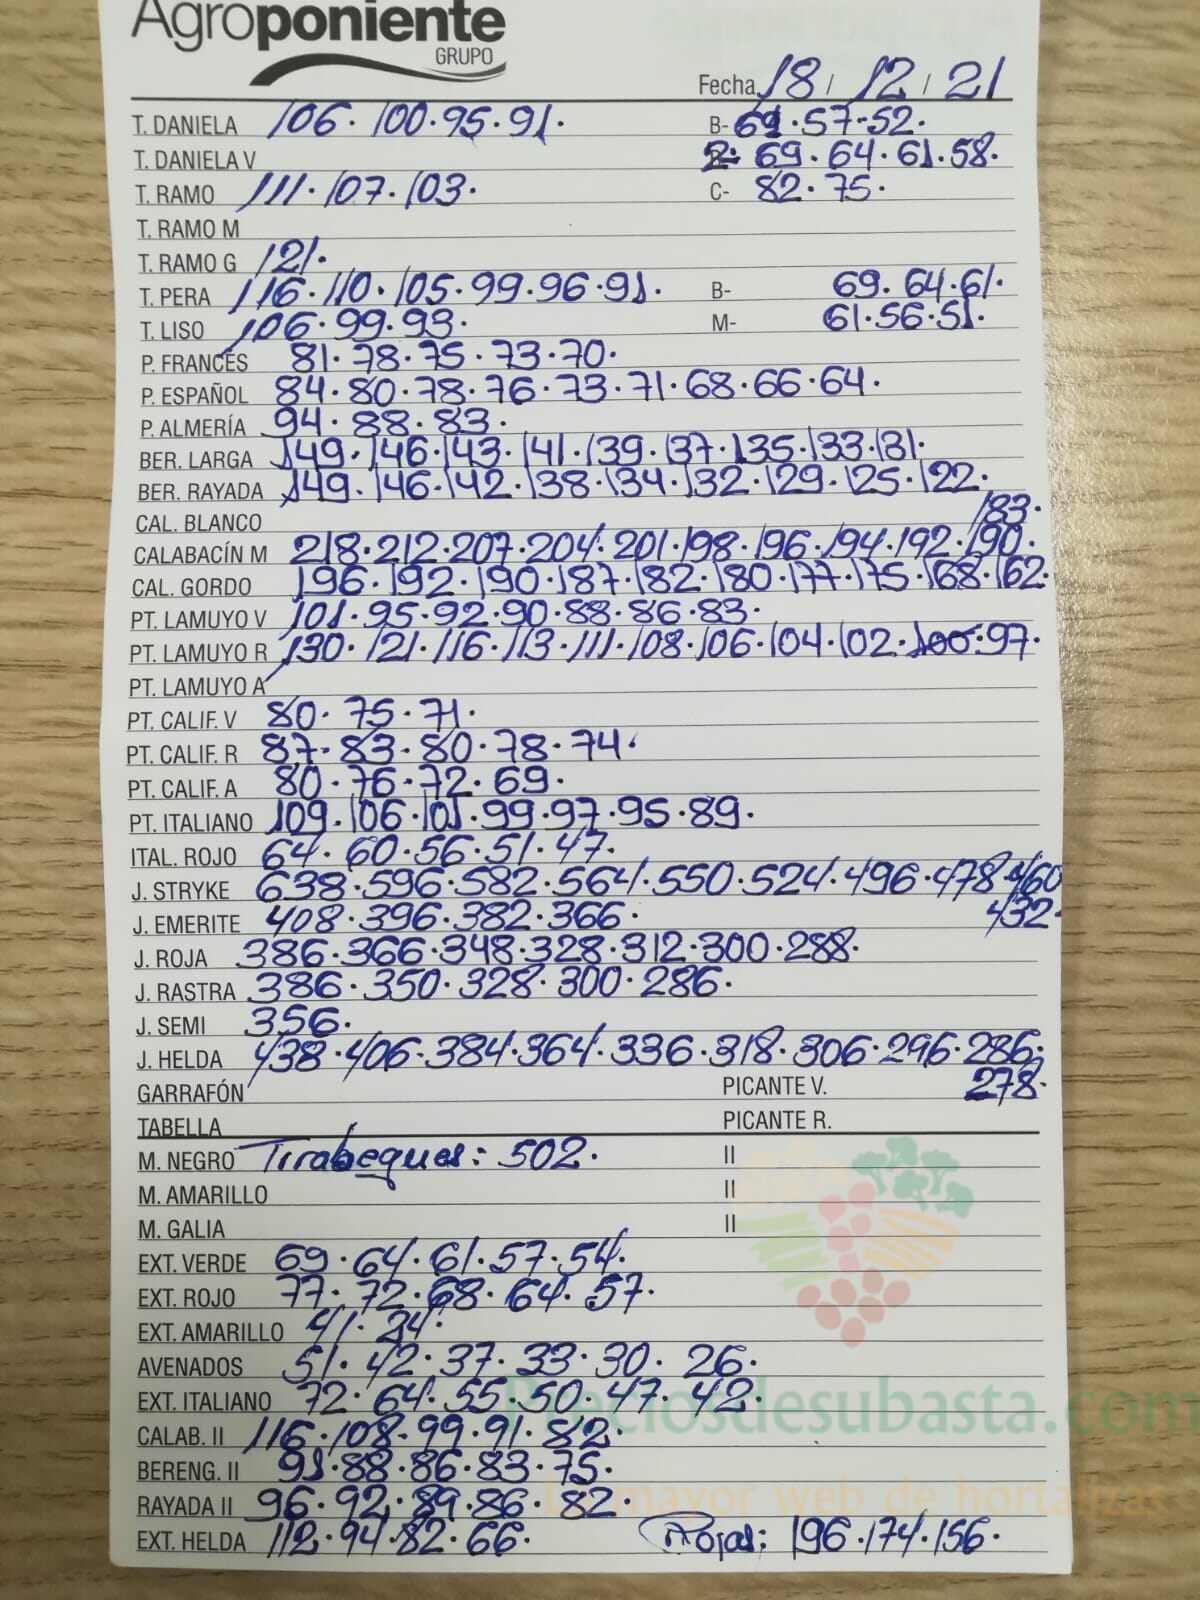 Agroponiente
GRUPO
Fecha 18 / 12 / 21
T. DANIELA 106 · 100 · 95 · 91 · B- 61 · 57 · 52 ·
T. DANIELA V 2: 69 · 64 · 61 · 58 ·
T. RAMO 111 · 107 · 103 · C- 82 · 75 ·
T. RAMO M
T. RAMO G 121 ·
T. PERA 116 · 110 · 105 · 99 · 96 · 91 · B- 69 · 64 · 61 ·
T. LISO 106 · 99 · 93 · M- 61 · 56 · 51 ·
P. FRANCÉS 81 · 78 · 75 · 73 · 70 ·
P. ESPAÑOL 84 · 80 · 78 · 76 · 73 · 71 · 68 · 66 · 64 ·
P. ALMERÍA 94 · 88 · 83 ·
BER. LARGA 149 · 146 · 143 · 141 · 139 · 137 · 135 · 133 · 131 ·
BER. RAYADA 149 · 146 · 142 · 138 · 134 · 132 · 129 · 125 · 122 ·
CAL. BLANCO 183 ·
CALABACÍN M 218 · 212 · 207 · 204 · 201 · 198 · 196 · 194 · 192 · 190 ·
CAL. GORDO 196 · 192 · 190 · 187 · 182 · 180 · 177 · 175 · 168 · 162 ·
PT. LAMUYO V 101 · 95 · 92 · 90 · 88 · 86 · 83 ·
PT. LAMUYO R 130 · 121 · 116 · 113 · 111 · 108 · 106 · 104 · 102 · 100 · 97 ·
PT. LAMUYO A
PT. CALIF. V 80 · 75 · 71 ·
PT. CALIF. R 87 · 83 · 80 · 78 · 74 ·
PT. CALIF. A 80 · 76 · 72 · 69 ·
PT. ITALIANO 109 · 106 · 101 · 99 · 97 · 95 · 89 ·
ITAL. ROJO 64 · 60 · 56 · 51 · 47 ·
J. STRYKE 638 · 596 · 582 · 564 · 550 · 524 · 496 · 478 · 460
J. EMERITE 408 · 396 · 382 · 366 · 432 ·
J. ROJA 386 · 366 · 348 · 328 · 312 · 300 · 288 ·
J. RASTRA 386 · 350 · 328 · 300 · 286 ·
J. SEMI 356 ·
J. HELDA 438 · 406 · 384 · 364 · 336 · 318 · 306 · 296 · 286 ·
GARRAFÓN PICANTE V. 278 ·
TABELLA PICANTE R.
M. NEGRO Tirabeques: 502 · II
M. AMARILLO II
M. GALIA II
EXT. VERDE 69 · 64 · 61 · 57 · 54 ·
EXT. ROJO 77 · 72 · 68 · 64 · 57 ·
EXT. AMARILLO 41 · 34 ·
AVENADOS 51 · 42 · 37 · 33 · 30 · 26 ·
EXT. ITALIANO 72 · 64 · 55 · 50 · 47 · 42 ·
Preciosdesubasta.com
CALAB. II 116 · 108 · 99 · 91 · 82 ·
BERENG. II 91 · 88 · 86 · 83 · 75 ·
La mayor web de hortalizas
RAYADA II 96 · 92 · 89 · 86 · 82 ·
EXT. HELDA 112 · 94 · 82 · 66 · Rojas: 196 · 174 · 156 ·